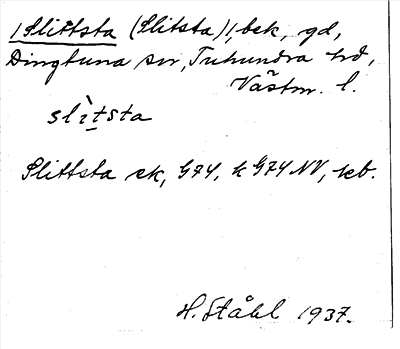 /Slittsta (Slitsta)/, bek, gd,
Dingtuna sn, Tuhundra hd,
Västm. l.
slìtsta
Slittsta ek, G74, k G74 NV, kb.
H. Ståhl 1937.